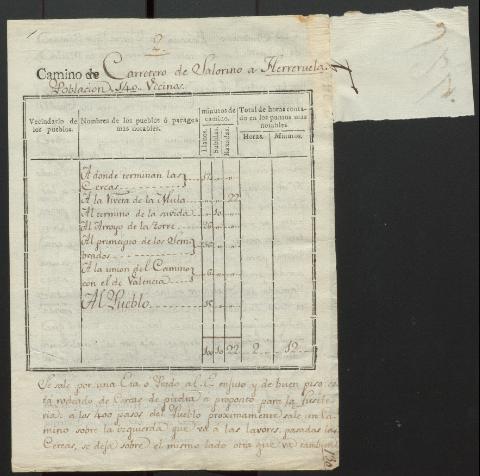 2.
Camino de Carretero de Salorino a Herreruela
Poblacion 140 Vecinos
Vecindario de los pueblos.
Nombres de los pueblos ó parages mas notables.
minutos de camino.
Llanos.
Subidas.
Baxadas.
Total de horas contado en los puntos mas notables.
Horas. Minutos.
A donde terminan las Cercas
A la Rivera de la Mula 22
Al termino de la suvida 10
Al Arroyo de la Torre
Al principio de los Sembrados
A la union del Camino con el de Valencia
Al Pueblo
100 10 22 2 12
Se sale por una
rodeado de Cercas de piedra a proposito para la fusile-
ria: a los 400 pasos del Pueblo proximamente sale un Ca-
mino sobre la izquierda que va á las lavores, pasadas las
Cercas, se deja sobre el mismo lado otro que va tambien